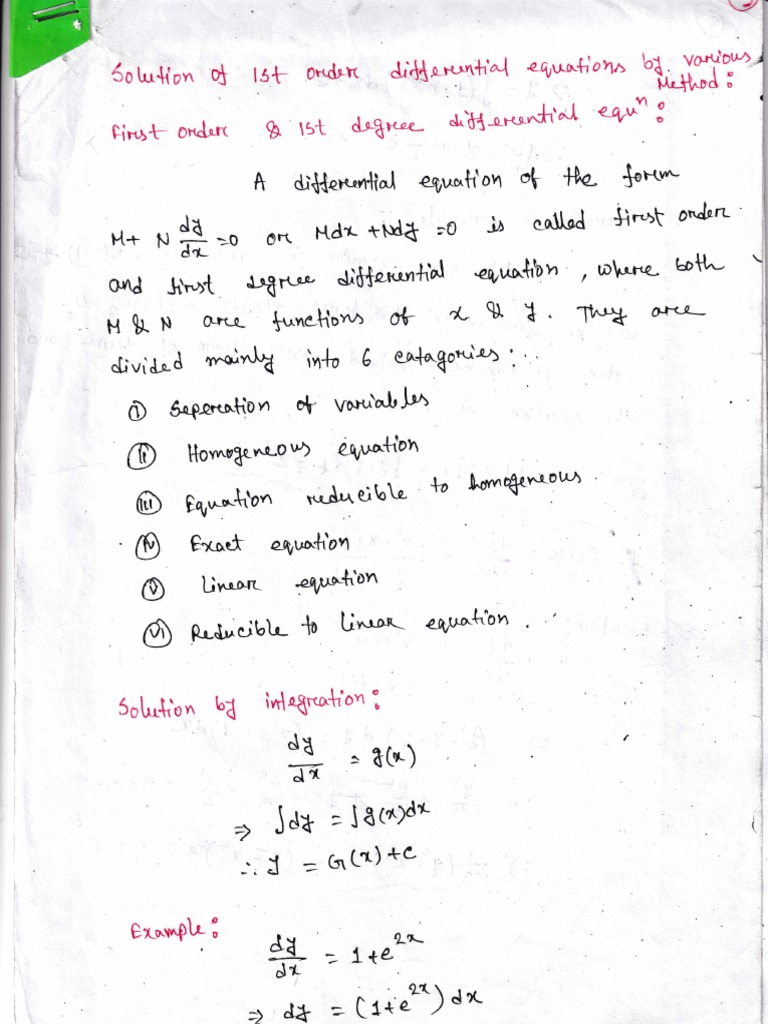 Solution of 1st order differential equations by various
Method:
First order & 1st degree differential equⁿ:
A differential equation of the form
M + N dy/dx = 0 or Mdx + Ndy = 0 is called first order
and first degree differential equation, where both
M & N are functions of x & y. They are
divided mainly into 6 catagories:
(i) Seperation of variables
(ii) Homogeneous equation
(iii) Equation reducible to homogeneous.
(iv) Exact equation
(v) Linear equation
(vi) Reducible to linear equation.
Solution by integration:
dy/dx = g(x)
⇒ ∫dy = ∫g(x)dx
∴ y = G(x) + c
Example:
dy/dx = 1+e^{2x}
⇒ dy = (1+e^{2x}) dx